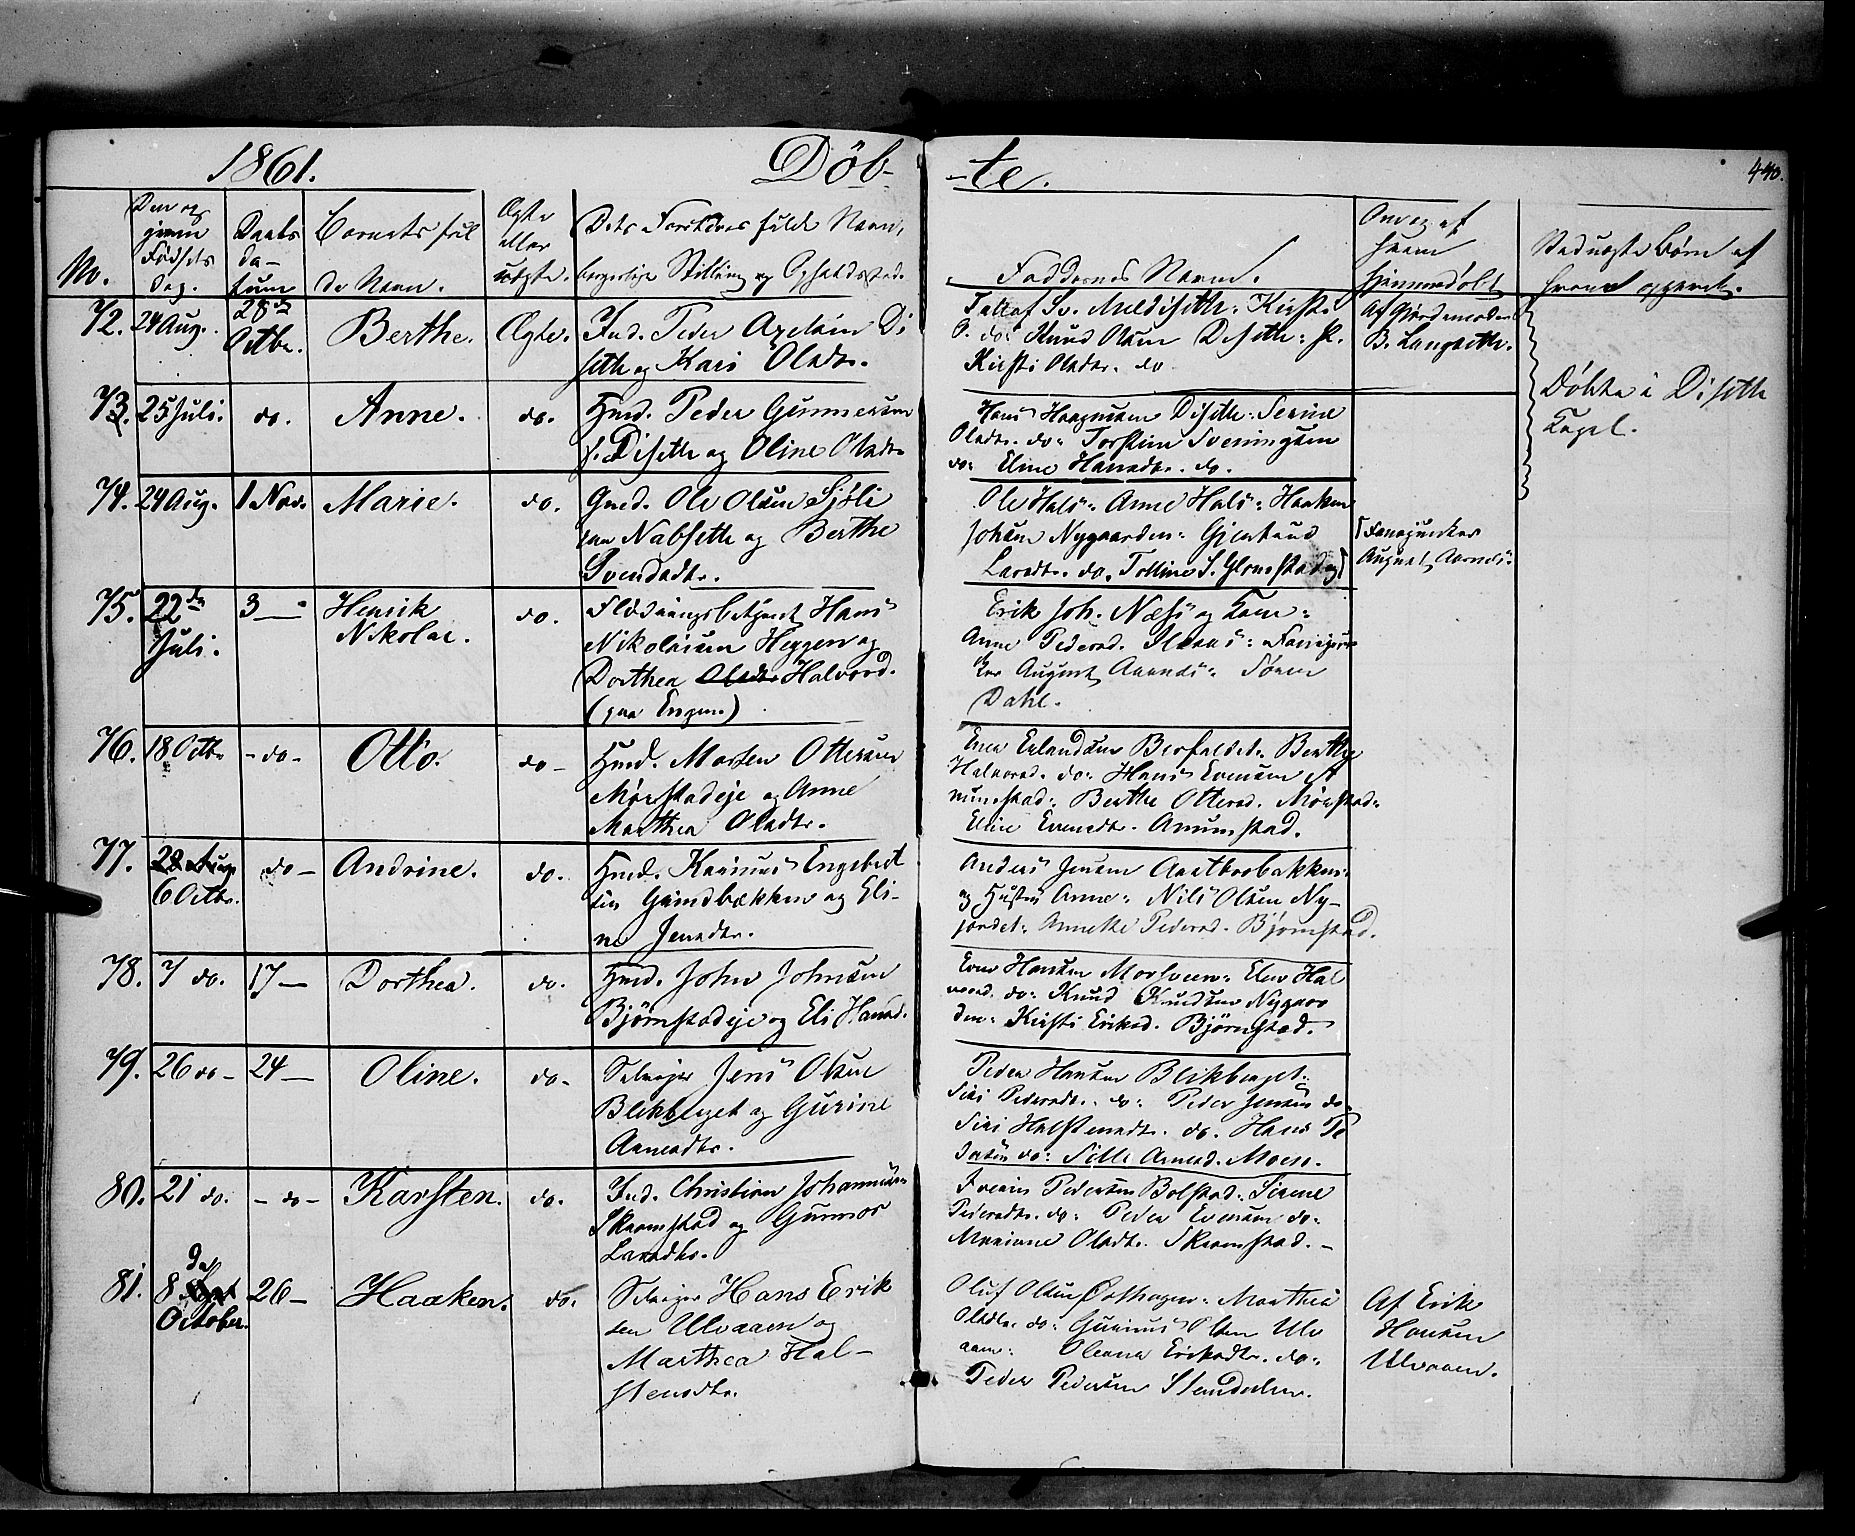 1861.
Døb-
-te.
440.
No.
Den og
Fødsels
Dag.
Daabs
da-
tum
Barnets ful
de Navn.
Ægte
eller
uægte.
Dets Forældres fulde Navn,
borgerlige Stilling og Opholdssted.
Faddernes Navn.
hvem
hjemmedøbt
Uduægte Børn af
hvem
72. 24 Aug. 28de
Octbr. Berthe. Ægte. Ind. Peder Di
seth og Kari Olsdtr.
Knud Olsen Diseth
Kirsti Olsdtr. do
Af Gjordemoder
B. Langseth.
Døbte i Diseth
Kapel.
73. 25 Juli. do. Anne. do. Hmd. Peder Gunnersen
Diseth og Oline Olsdtr
Hans Haagensen Diseth: Serine
Olsdtr. do: Torsten Sveningsen
do: Eline Hansdtr. do.
74. 24 Aug. 1 Nov. Marie. do. Gmd. Ole Olsen Sjøli
paa Nabseth og Berthe
Svendsdtr.
Ole Hals: Anne Hals: Haaken
Johsen Nygaarden: Gjertrud
Larsdtr. do.
Fanejunker
August
75. 22de
Juli. 3 — Henrik
Nikolai. do. Hans
Nikolaisen Heggen og
Dorthea Halvorsd.
(paa Engen.)
Erik Joh. Næss og Kone:
Anne Pedersd.
ker August
Dahl.
76. 18 Octbr - do - Otto. do - Hmd. Morten Ottersen
Mørstadeje og Anne
Marthea Olsdtr.
Even Erlandsen Berthe
Halvorsd. do: Hans Evensen A
numstad: Berthe Ottersd. Mørstad:
Eline Evensdtr. Anumstad.
77. 28 Aug
6 Octbr. do - Andrine. do. Hmd. Karinus Engebret
sen Grindbækken og Eli-
ne Jensdtr.
Anders Jensen
og Hustru Anne: Nils Olsen Ny-
jordet: Annethe Pedersd. Bjørnstad.
78. 7 do. 17 — Dorthea. do. Hmd. John Johnsen
Bjørnstadeje og Eli Hansd.
Even Hansen Hal
vorsd. do: Knud Knudsen Nygaar
den: Kirsti Eriksd. Bjørnstad.
79. 26 do - 24 — Oline. do - Selvejer Jens Olsen
Blikberget og Gurine
Arnesdtr.
Peder Hansen Blikberget:
Siri Pedersdtr. do: Peder Jensen do.
Siri Halstensdtr. do. Hans Pe
dersen do: Sille Arnesd. Moen.
80. 21 do. - do - Karsten. do. Ind. Christian Johannesen
Skramstad og Gunnor
Larsdtr.
Pedersen Bolstad: Sirene
Pedersdtr. do: Peder Evensen do:
Mariane Olsdtr. Skramstad. -
81. 8de Sept
October. 26 - Haaken. do. Selvejer Hans Erik
sen Ulvaaen og
Marthea Hal-
stensdtr.
Oluf Olsen Marthea
Olsdtr. do: Gunnerus Olsen Ulv
aaen: Oleana Eriksdtr. do:
Peder Pedersen
Af Erik
Hansen
Ulvaaen.